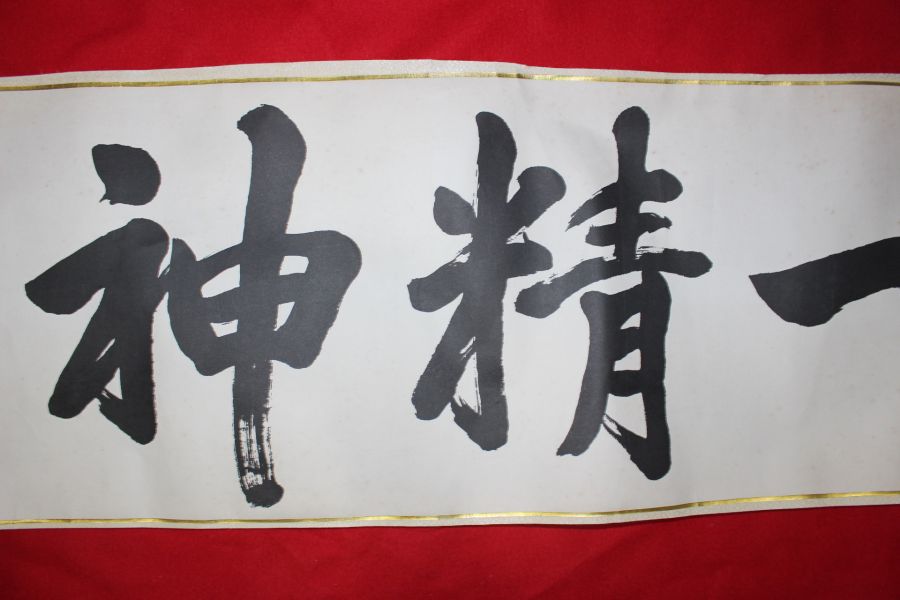 一精神